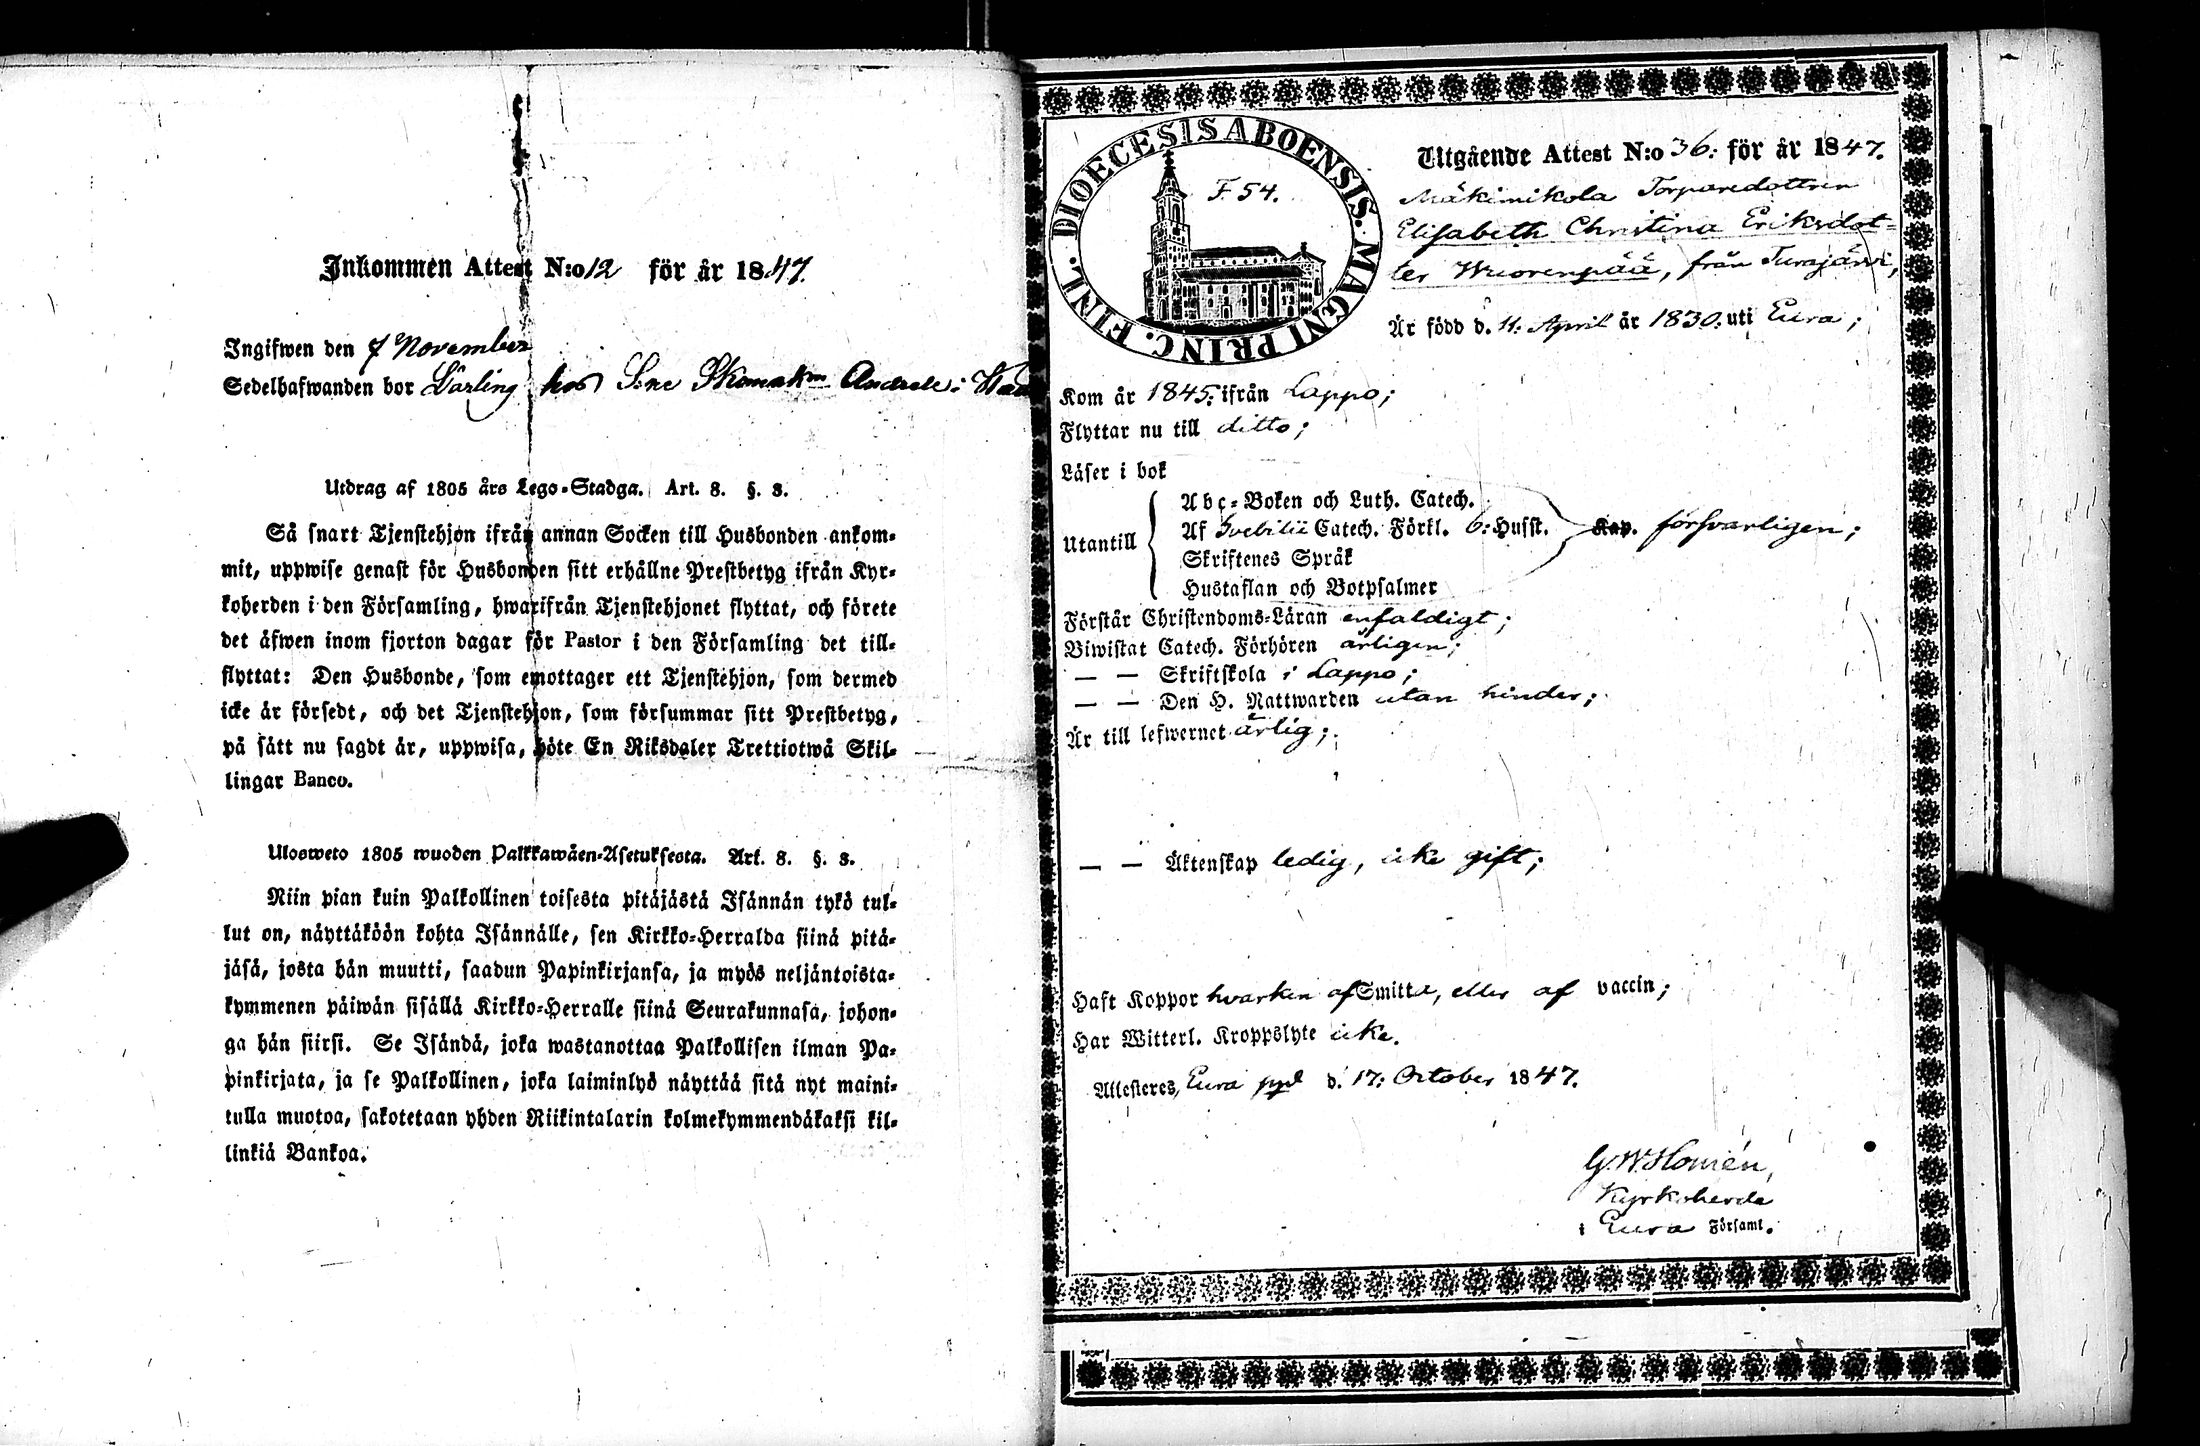 Inkommen Attest N:o 12 för år 1847.
Ingifwen den 7 November
Sedelhafwanden bor Lärling hos Sone Skomakrn Andrele i
Utdrag af 1805 års Lego-Stadga. Art. 8. §. 3.
Så snart Tjenstehjon ifrån annan Socken till Husbonden ankom-
mit, uppwise genast för Husbonden sitt erhållne Prestbetyg ifrån Kyr-
koherden i den Församling, hwarifrån Tjenstehjonet flyttat, och förete
det äfwen inom fjorton dagar för Pastor i den Församling det till-
flyttat: Den Husbonde, som emottager ett Tjenstehjon, som dermed
icke är försedt, och det Tjenstehjon, som försummar sitt Prestbetyg,
på sätt nu sagdt är, uppwisa, böte En Riksdaler Trettiotwå Skil-
lingar Banco.
Ulosweto 1805 wuoden Palkkawäen-Asetuksesta. Art. 8. §. 3.
Niin pian kuin Palkollinen toisesta pitäjästä Isännän tykö tul-
lut on, näyttäköön kohta Isännälle, sen Kirkko-Herralda siinä pitä-
jäsä, josta hän muutti, saadun Papinkirjansa, ja myös neljäntoista-
kymmenen päiwän sisällä Kirkko-Herralle siinä Seurakunnasa, johon-
ga hän siirsi. Se Isändä, joka wastanottaa Palkollisen ilman Pa-
pinkirjata, ja se Palkollinen, joka laiminlyö näyttää sitä nyt maini-
tulla muotoa, sakotetaan yhden Riikintalarin kolmekymmendäkaksi kil-
linkiä Bankoa.
DIOECESIS ABOENSIS. MAGNI PRINC. FINL.
F. 54.
Utgående Attest N:o 36: för år 1847.
Mäkimikola Torparedottren
Elisabeth Christina Eriksdot-
ter Wuorenpää, från Turajärvi,
Är född d. 11: April år 1830: uti Eura;
Kom år 1845: ifrån Lappo;
Flyttar nu till ditto;
Läser i bok
Utantill
Abc-Boken och Luth. Catech.
Af Svebilii Catech. Förkl. 6: Husst.
Skriftenes Språk
Hustaflan och Botpsalmer
Kap. försvarligen;
Förstår Christendoms-Läran enfaldigt;
Biwistat Catech. Förhören årligen;
— — Skriftskola i Lappo;
— — Den H. Nattwarden utan hinder;
Är till lefwernet ärlig;
— — Äktenskap ledig, icke gift;
Haft Koppor hvarken af Smitta, eller af vaccin;
Har Witterl. Kroppslyte icke.
Attesteres, Eura ppd d. 17: October 1847.
G. W. Homén,
Kyrkoherde
i Eura Församl.